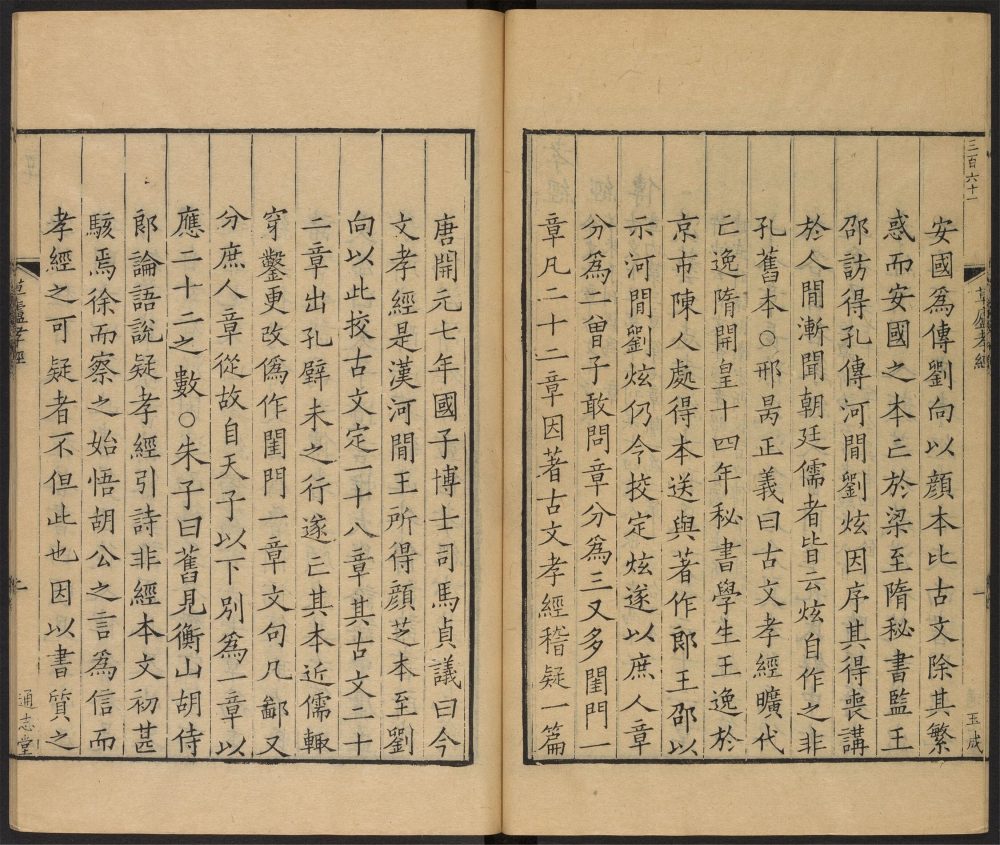 三百六十一
草廬孝經
一
玉成
安國爲傳劉向以顔本比古文除其繁
惑而安國之本亡於梁至隋秘書監王
邵訪得孔傳河間劉炫因序其得喪講
於人間漸聞朝廷儒者皆云炫自作之非
孔舊本○邢昺正義曰古文孝經曠代
亡逸隋開皇十四年秘書學生王逸於
京市陳人處得本送與著作郎王邵以
示河間劉炫仍令挍定炫遂以庶人章
分爲二曾子敢問章分爲三又多閨門一
章凡二十二章因著古文孝經稽疑一篇
唐開元七年國子博士司馬貞議曰今
文孝經是漢河間王所得顔芝本至劉
向以此挍古文定一十八章其古文二十
二章出孔壁未之行遂亡其本近儒輒
穿鑿更改僞作閨門一章文句凡鄙又
分庶人章從故自天子以下別爲一章以
應二十二之數○朱子曰舊見衡山胡侍
郎論語說疑孝經引詩非經本文初甚
駭焉徐而察之始悟胡公之言爲信而
孝經之可疑者不但此也因以書質之
草廬孝經
通志堂